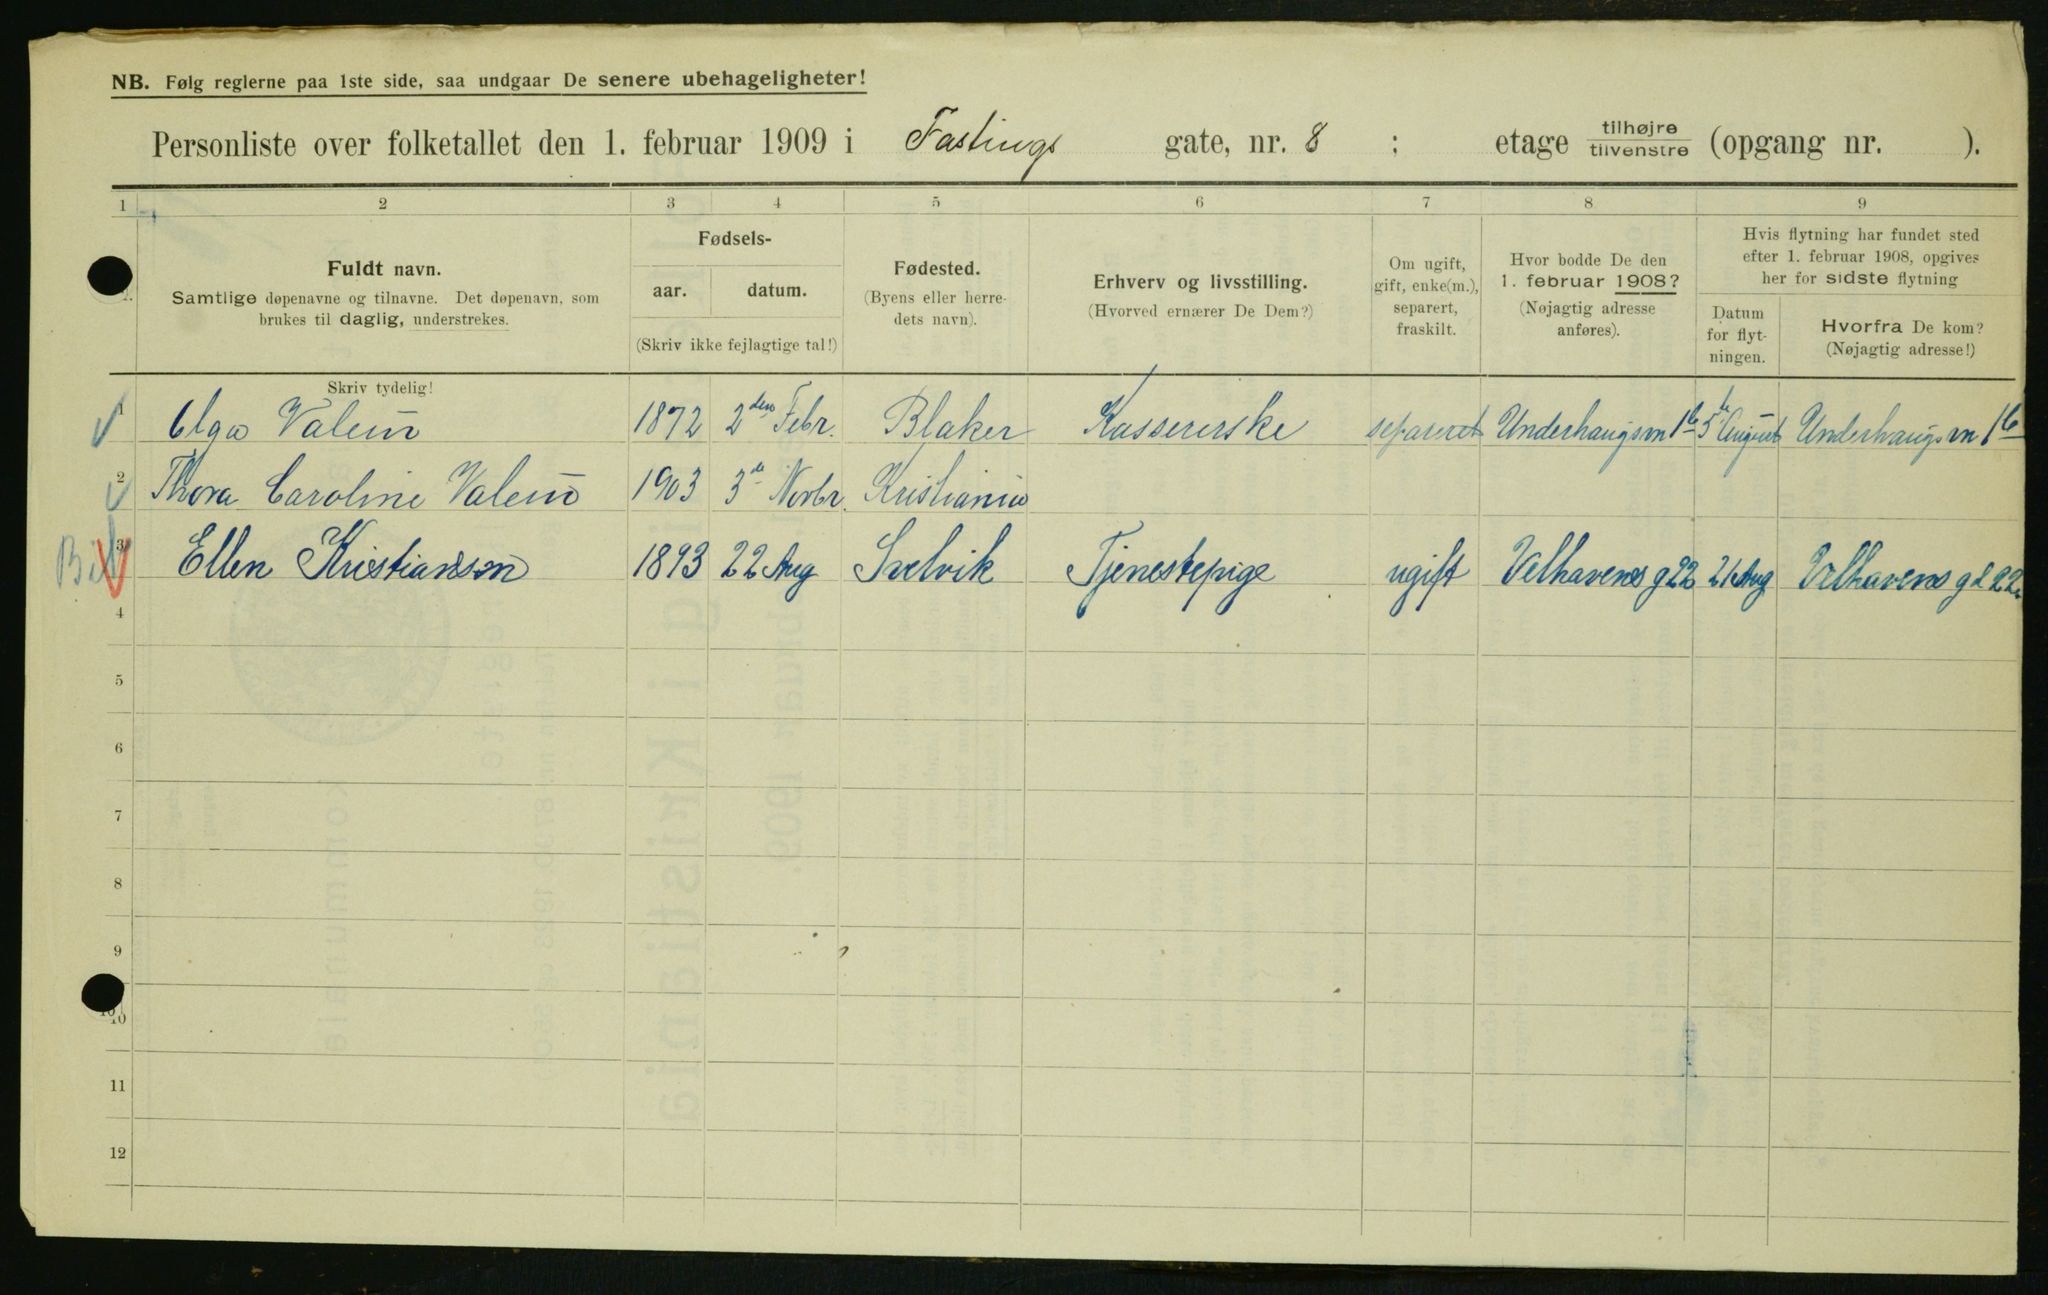 NB. Følg reglerne paa 1ste side, saa undgaar De senere ubehageligheter!
Personliste over folketallet den 1. februar 1909 i Fastings gate, nr. 8 ; etage tilhøjre tilvenstre (opgang nr. ).
1 2 3 4 5 6 7 8 9
Fuldt navn.
Samtlige døpenavne og tilnavne. Det døpenavn, som
brukes til daglig, understrekes.
Fødsels-
aar. datum.
(Skriv ikke fejlagtige tal!)
Fødested.
(Byens eller herre-
dets navn).
Erhverv og livsstilling.
(Hvorved ernærer De Dem?)
Om ugift,
gift, enke(m.),
separert,
fraskilt.
Hvor bodde De den
1. februar 1908?
(Nøjagtig adresse
anføres).
Hvis flytning har fundet sted
efter 1. februar 1908, opgives
her for sidste flytning
Datum
for flyt-
ningen.
Hvorfra De kom?
(Nøjagtig adresse!)
Skriv tydelig!
1 Olga Valeur 1872 2den Febr. Blaker Kassererske separeret Underhaugsvn 16 5te August Underhaugsvn 16
2 Thora Caroline Valeur 1903 3de Novbr. Kristiania
3 Ellen Kristiansen 1893 22 Aug Svelvik Tjenestepige ugift Velhavens g 22 21 Aug Velhavens gd 22
4
5
6
7
8
9
10
11
12